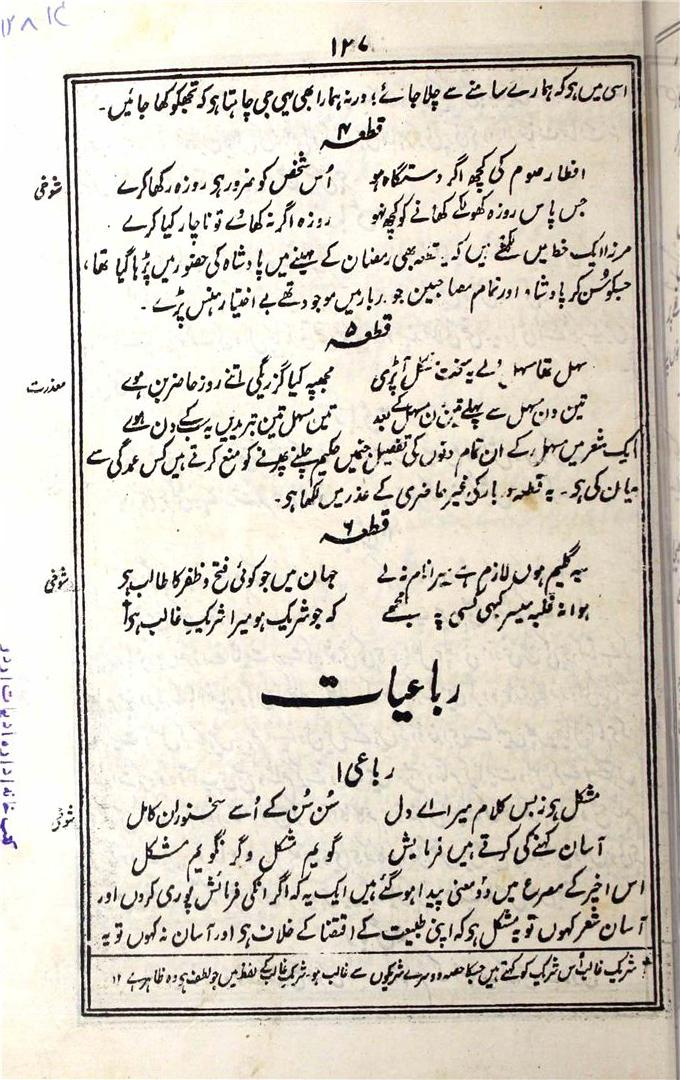 ۱۲۷
اسی میں ہو کہ ہمارے سامنے سے چلا جائے؛ ورنہ ہمارا بھی یہی جی چاہتا ہو کہ تجھکو کھا جائیں۔
قطعہ ۴
شوخی
افطار صوم کی کچھ اگر دستگاہ ہو اُس شخص کو ضرور ہی روزہ رکھا کرے
جس پاس روزہ کھول کے کھانے کو کچھ نہو روزہ اگر نہ کھاے تو ناچار کیا کرے
مرزا ایک خط میں لکھتے ہیں کہ یہ قطعہ بھی رمضان کے مہینے میں بادشاہ کی حضور میں پڑہا گیا تھا،
جسکو سُن کر بادشاہ اور تمام مصاحبین جو دربار میں موجود تھے بے اختیار ہنس پڑے۔
قطعہ ۵
معذرت
سہل تھا مسہل ولے یہ سخت مشکل آپڑی مجھپہ کیا گزریگی اتنے روز حاضر بن ہوے
تین دن مسہل سے پہلے تین دن مسہل کے بعد تین مسہل تین تبریدیں یہ سب کے دن ہوے
ایک شعر میں مسہل کے ان تمام دنوں کی تفصیل جنمیں حکیم چلنے پھرنے کو منع کرتے ہیں کس عمدگی سے
بیان کی ہو۔ یہ قطعہ دربار کی غیر حاضری کے عذر میں لکھا ہو۔
قطعہ ۶
شوخی
سیہ گلیم ہوں لازم ہے میرا نام نہ لے جہان میں جو کوئی فتح و ظفر کا طالب ہو
ہوا نہ غلبہ میسر کبھی کسی پہ مجھے کہ جو شریک ہو میرا شریکِ غالب ہو
رباعیات
رباعی ۱
شوخی
مشکل ہو زبس کلام میرا اے دل سُن سُن کے اُسے سخنورانِ کامل
آسان کہنے کی کرتے ہیں فرمایش گویم مشکل وگر نگویم مشکل
اس اخیر کے مصرع میں دو معنی پیدا ہو گئے ہیں ایک یہ کہ اگر انکی فرمائش پوری کروں اور
آسان شعر کہوں تو یہ مشکل ہو کہ اپنی طبیعت کے اقتضا کے خلاف ہو اور آسان نہ کہوں تو یہ
شریک غالب اُس شریک کو کہتے ہیں جسکا حصہ دوسرے شریکوں سے غالب ہو۔ شریک غالب کے لفظ میں جو لطف ہو وہ ظاہر ہے ۱۲